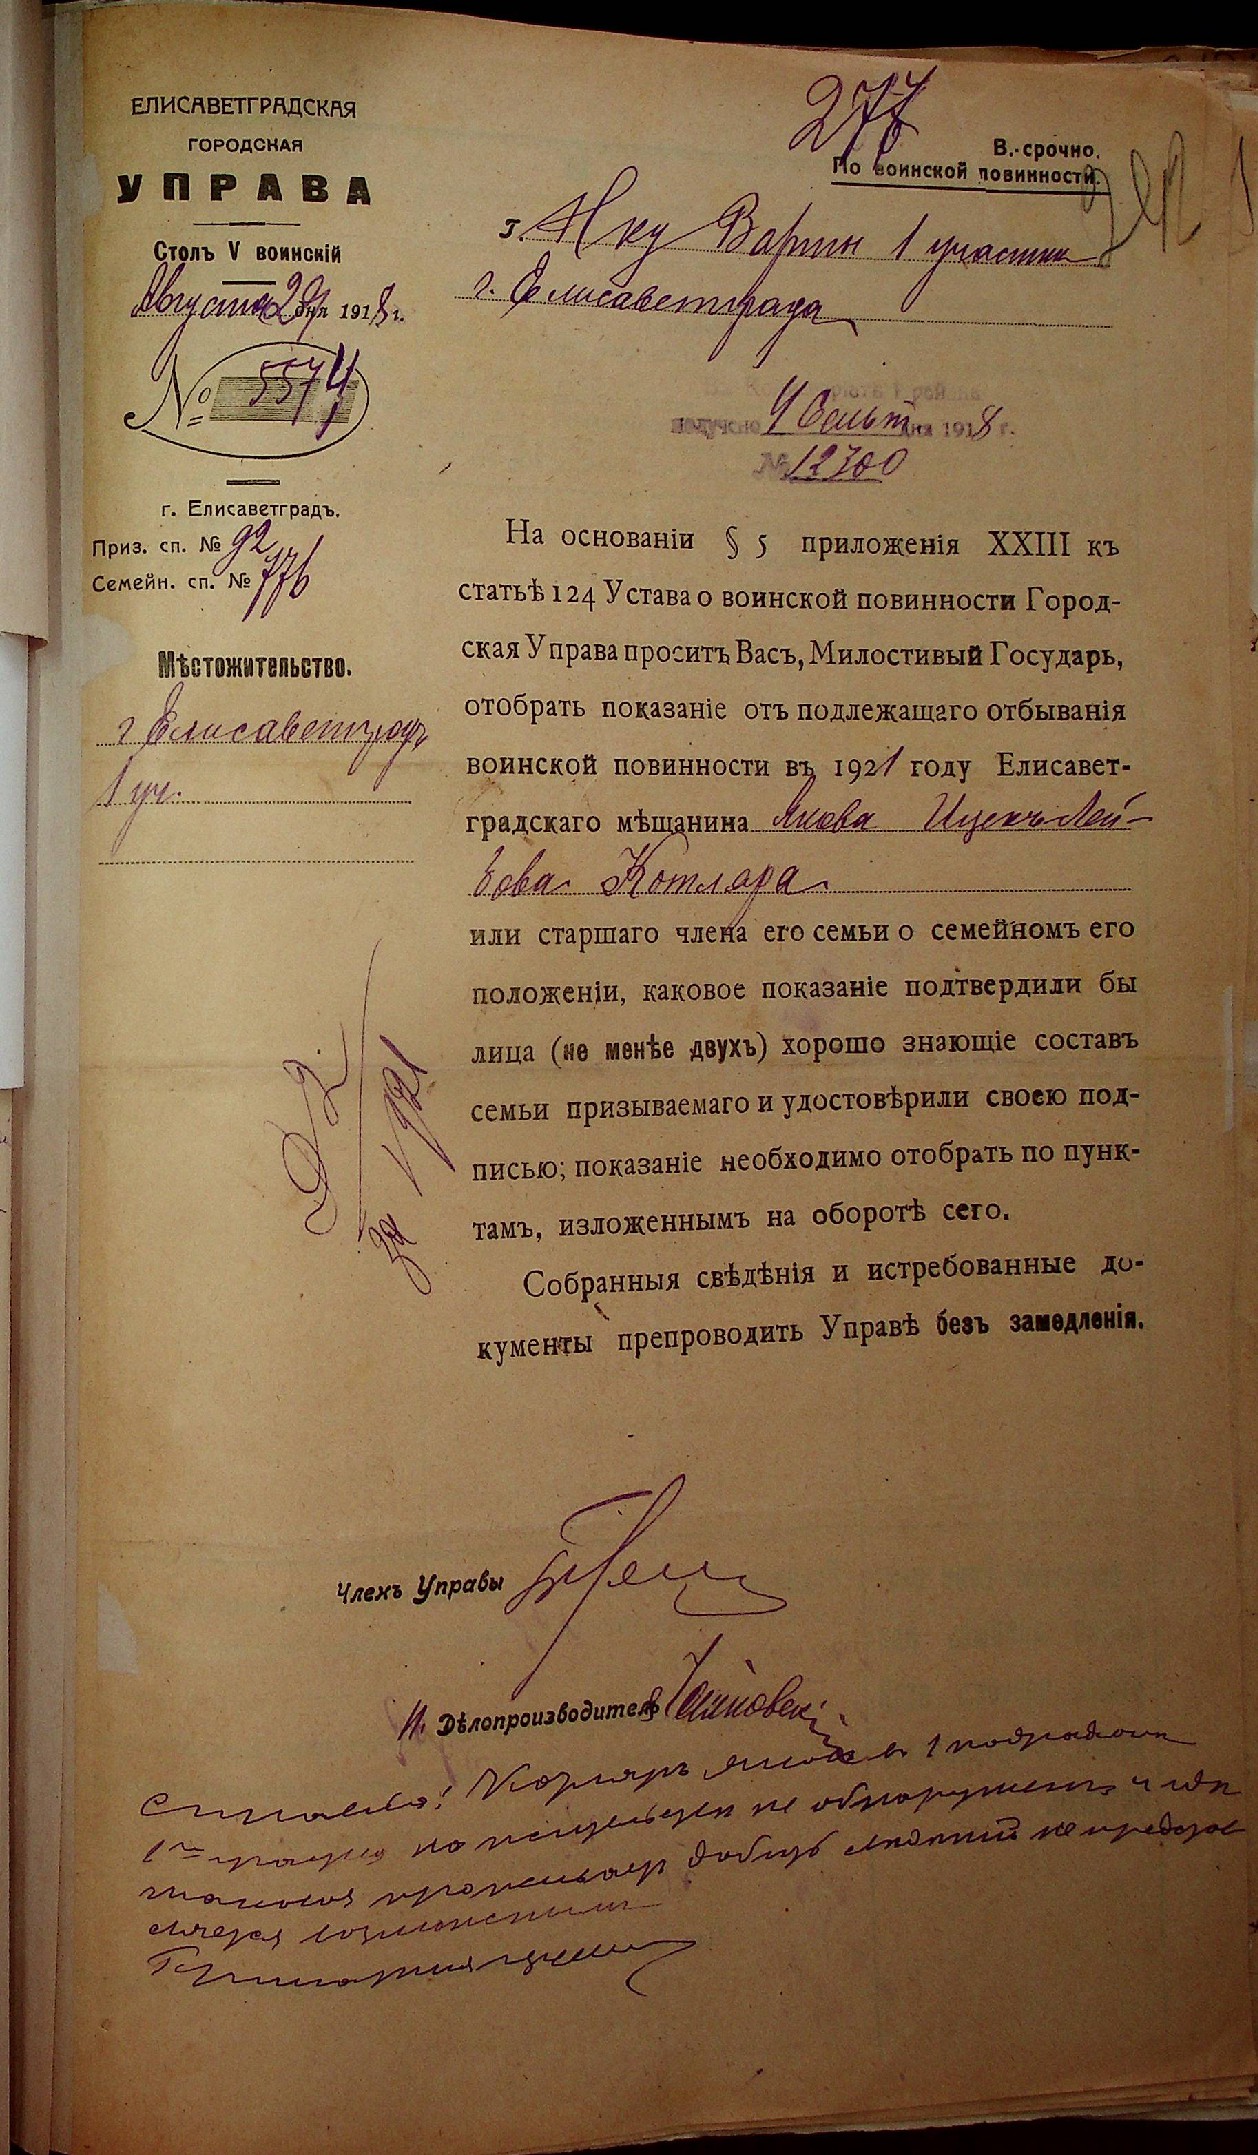 ЕЛИСАВЕТГРАДСКАЯ
ГОРОДСКАЯ
УПРАВА
Столъ V воинскій
Августа 29 дня 1918 г.
№ 5574
г. Елисаветградъ.
Приз. сп. № 92
Семейн. сп. № 776
Мѣстожительство.
г Елисаветградъ
1 уч.
277
В.-срочно.
По воинской повинности.
г. Нку Варты 1 участка
г. Елисаветграда
получено 4 Сент дня 1918 г.
№ 12700
На основаніи § 5 приложенія XXIII къ
статьѣ 124 Устава о воинской повинности Город-
ская Управа проситъ Васъ, Милостивый Государь,
отобрать показаніе отъ подлежащаго отбыванія
воинской повинности въ 1921 году Елисавет-
градскаго мѣщанина Якова Ицекъ-Лей-
бова Котляра
или старшаго члена его семьи о семейномъ его
положеніи, каковое показаніе подтвердили бы
лица (не менѣе двухъ) хорошо знающіе составъ
семьи призываемаго и удостовѣрили своею под-
писью; показаніе необходимо отобрать по пунк-
тамъ, изложеннымъ на оборотѣ сего.
Собранныя свѣдѣнія и истребованные до-
кументы препроводить Управѣ безъ замедленія.
92
за 1921
Членъ Управы
И. Дѣлопроизводитель
Справка! Котляръ 1
не обнаруженъ и гдѣ